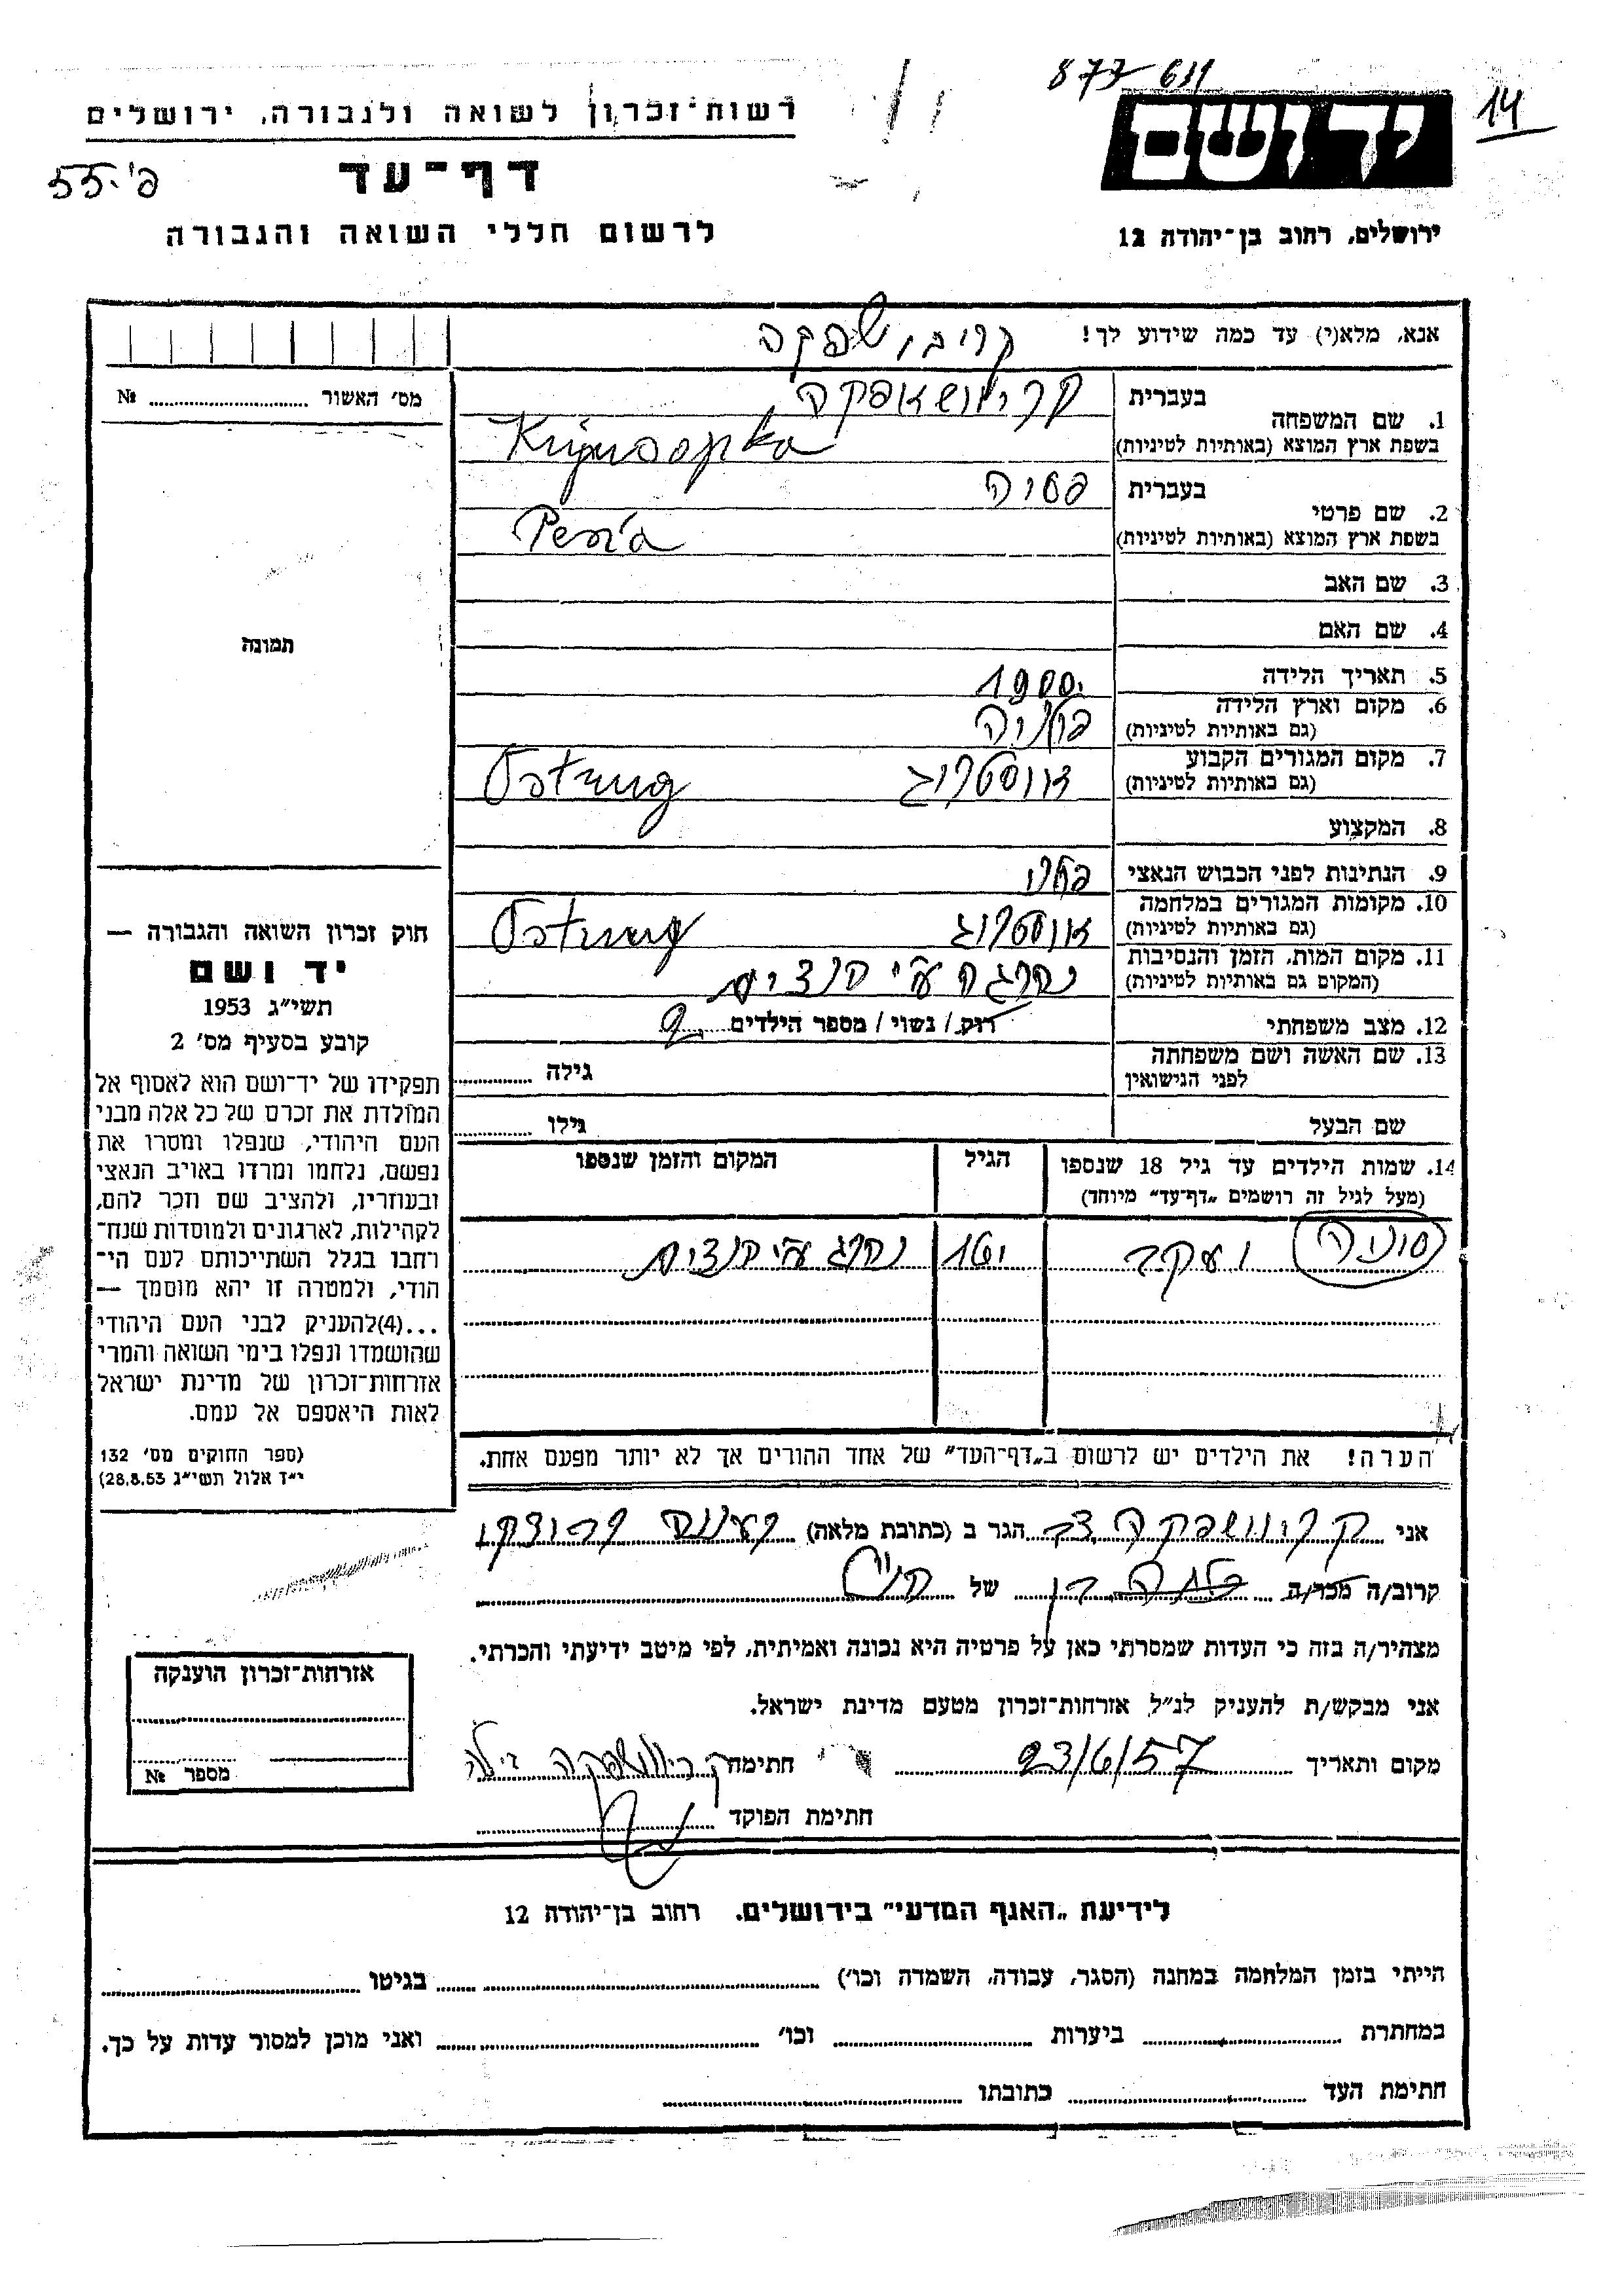 877 631
14
רשות־זכרון לשואה ולגבורה, ירושלים
יד ושם
פ'. 55
דף־עד
לרשום חללי השואה והגבורה
ירושלים, רחוב בן־יהודה 12
אנא, מלא(י) עד כמה שידוע לך!
קריבושפקה
מס' האשור ........ №
1. שם המשפחה
בעברית
קריוושאפקה
בשפת ארץ המוצא (באותיות לטיניות)
2. שם פרטי
בעברית
פסיה
בשפת ארץ המוצא (באותיות לטיניות)
Pesia
3. שם האב
4. שם האם
תמונה
5. תאריך הלידה
1900
6. מקום וארץ הלידה
(גם באותיות לטיניות)
פולניה
7. מקום המגורים הקבוע
(גם באותיות לטיניות)
אוסטרוג Ostrug
8. המקצוע
9. הנתינות לפני הכבוש הנאצי
פולני
10. מקומות המגורים במלחמה
(גם באותיות לטיניות)
אוסטרוג Ostrug
11. מקום המות, הזמן והנסיבות
(המקום גם באותיות לטיניות)
נהרגה ע"י הנצים
12. מצב משפחתי
רוק / נשוי / מספר הילדים 2
13. שם האשה ושם משפחתה
לפני הנישואין
גילה
שם הבעל
גילו
חוק זכרון השואה והגבורה —
יד ושם
תשי"ג 1953
קובע בסעיף מס' 2
תפקידו של יד־ושם הוא לאסוף אל
המולדת את זכרם של כל אלה מבני
העם היהודי, שנפלו ומסרו את
נפשם, נלחמו ומרדו באויב הנאצי
ובעוזריו, ולהציב שם וזכר להם,
לקהילות, לארגונים ולמוסדות שנח־
רבו בגלל השתייכותם לעם הי־
הודי, ולמטרה זו יהא מוסמך —
...(4)להעניק לבני העם היהודי
שהושמדו ונפלו בימי השואה והמרי
אזרחות־זכרון של מדינת ישראל
לאות היאספם אל עמם.
(ספר החוקים מס' 132
י"ד אלול תשי"ג 28.8.53)
14. שמות הילדים עד גיל 18 שנספו
(מעל לגיל זה רושמים "דף־עד" מיוחד)
הגיל
המקום והזמן שנספו
סוניה יעקב
נהרג ע"י הנצים
הערה! את הילדים יש לרשום ב"דף־העד" של אחד ההורים אך לא יותר מפעם אחת.
אני קריוושפקה הגר ב (כתובת מלאה)
קרוב/ה מכר/ה של הנ"ל
מצהיר/ה בזה כי העדות שמסרתי כאן על פרטיה היא נכונה ואמיתית, לפי מיטב ידיעתי והכרתי.
אני מבקש/ת להעניק לנ"ל אזרחות־זכרון מטעם מדינת ישראל.
מקום ותאריך 23/6/57 חתימה קריוושפקה
חתימת הפוקד
אזרחות־זכרון הוענקה
מספר №
לידיעת "האגף המדעי" בירושלים, רחוב בן־יהודה 12
הייתי בזמן המלחמה במחנה (הסגר, עבודה, השמדה וכו') ........ בגיטו ........
במחתרת ........ ביערות ........ וכו' ........ ואני מוכן למסור עדות על כך.
חתימת העד ........ כתובתו ........